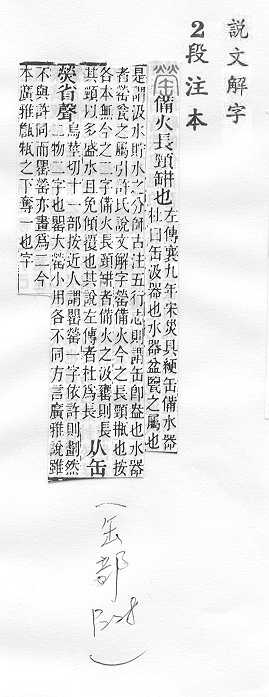 說文解字
2段注本
備火長頸缾也 左傳襄九年宋災具綆缶備水器
杜曰缶汲器也水器盆鑒之屬也
是謂汲水貯水之分師古注五行志則謂缶卽盎也水器
者罃瓮之屬引許氏說文解字罃備火今之長頸瓶也按
各本無今之二字備火長頸缾者備火之汲罋則長
其頸以多盛水且免傾覆也其說左傳者杜爲長 从缶
熒省聲 烏莖切十一部按近人謂罌罃一字依許則劃然
二物二字也罌大罃小用各不同方言廣雅說雖
不與許同而罌罃亦畫爲二今
本廣雅甀瓶之下奪一也字
(缶部
)